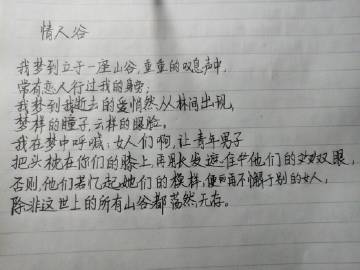 情人谷
我梦到立于一座山谷,重重的叹息声中,
常有恋人行过我的身旁;
我梦到我逝去的爱悄然从林间出现,
梦样的瞳子,云样的眼脸。
我在梦中呼喊:女人们啊,让青年男子
把头枕在你们的膝上,再用秋发遮住他们的双眼,
否则,他们若忆起她们的模样,便再不懈于别的女人,
除非这世上的所有山谷都荡然无存。